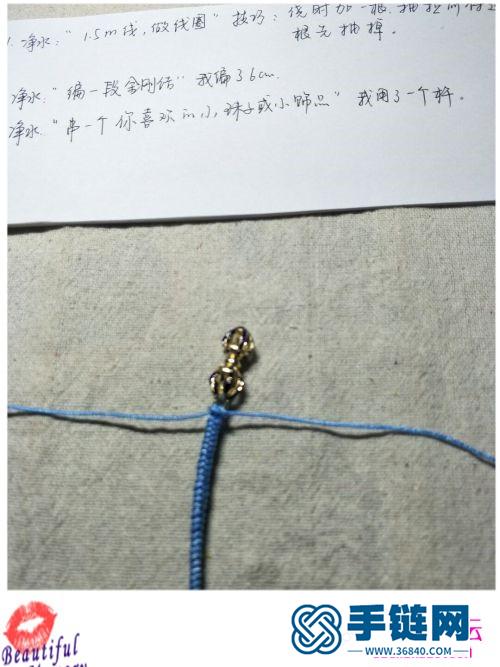 1. 净水:"1.5m线,做线圈" 技巧:绕时加一根,抽拉时将
根先抽掉。
净水:"编一段金刚结" 我编了6cm.
净水:"串一个你喜欢的小珠子或小饰品" 我用了一个杵。
Beautiful
手链网
www.36840.com